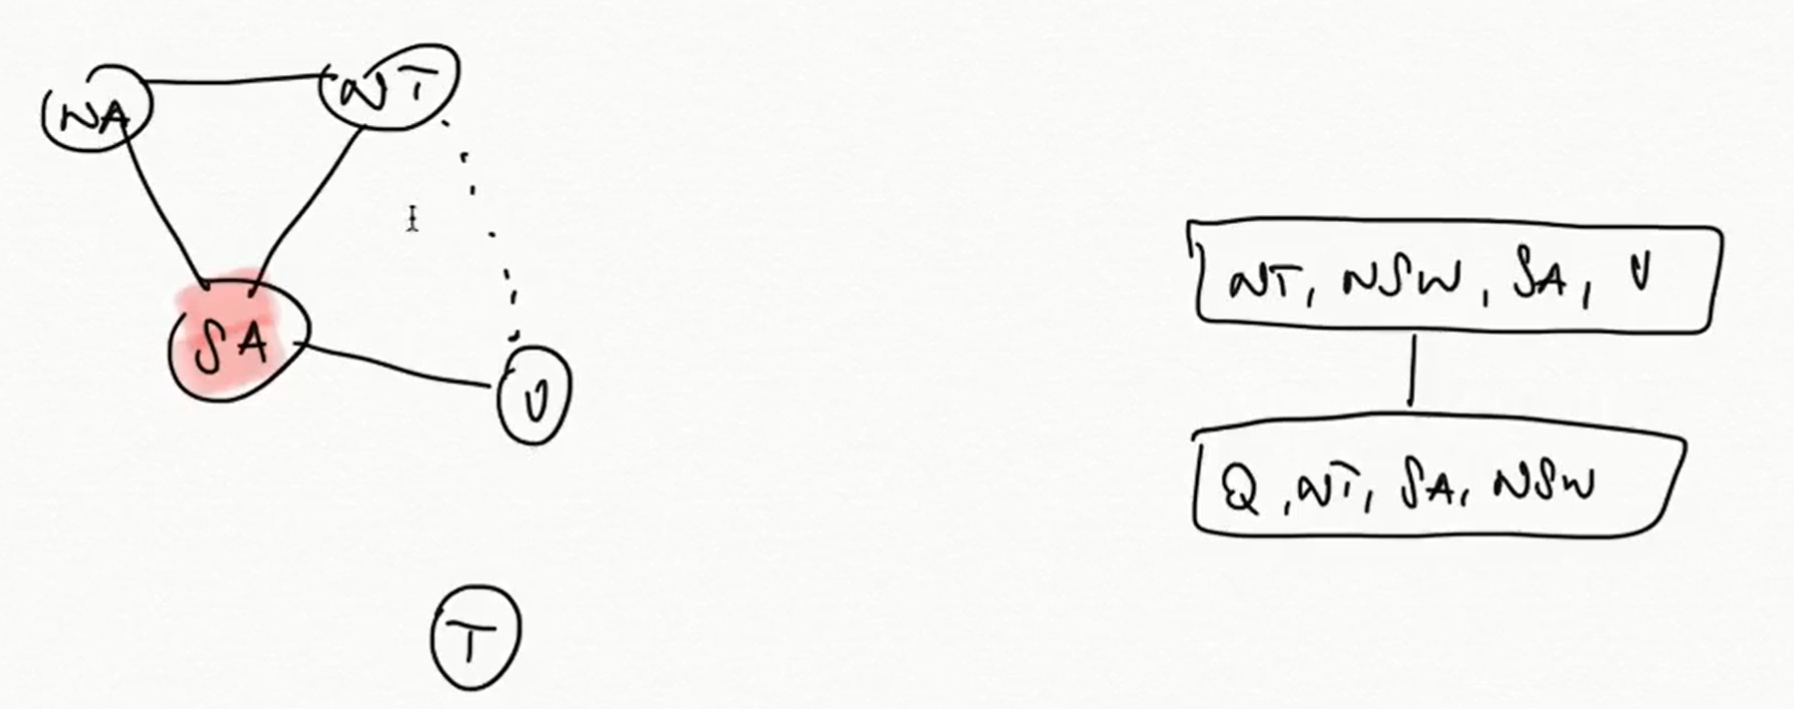 NA
NT
SA
V
T
NT, NSW, SA, V
Q, NT, SA, NSW